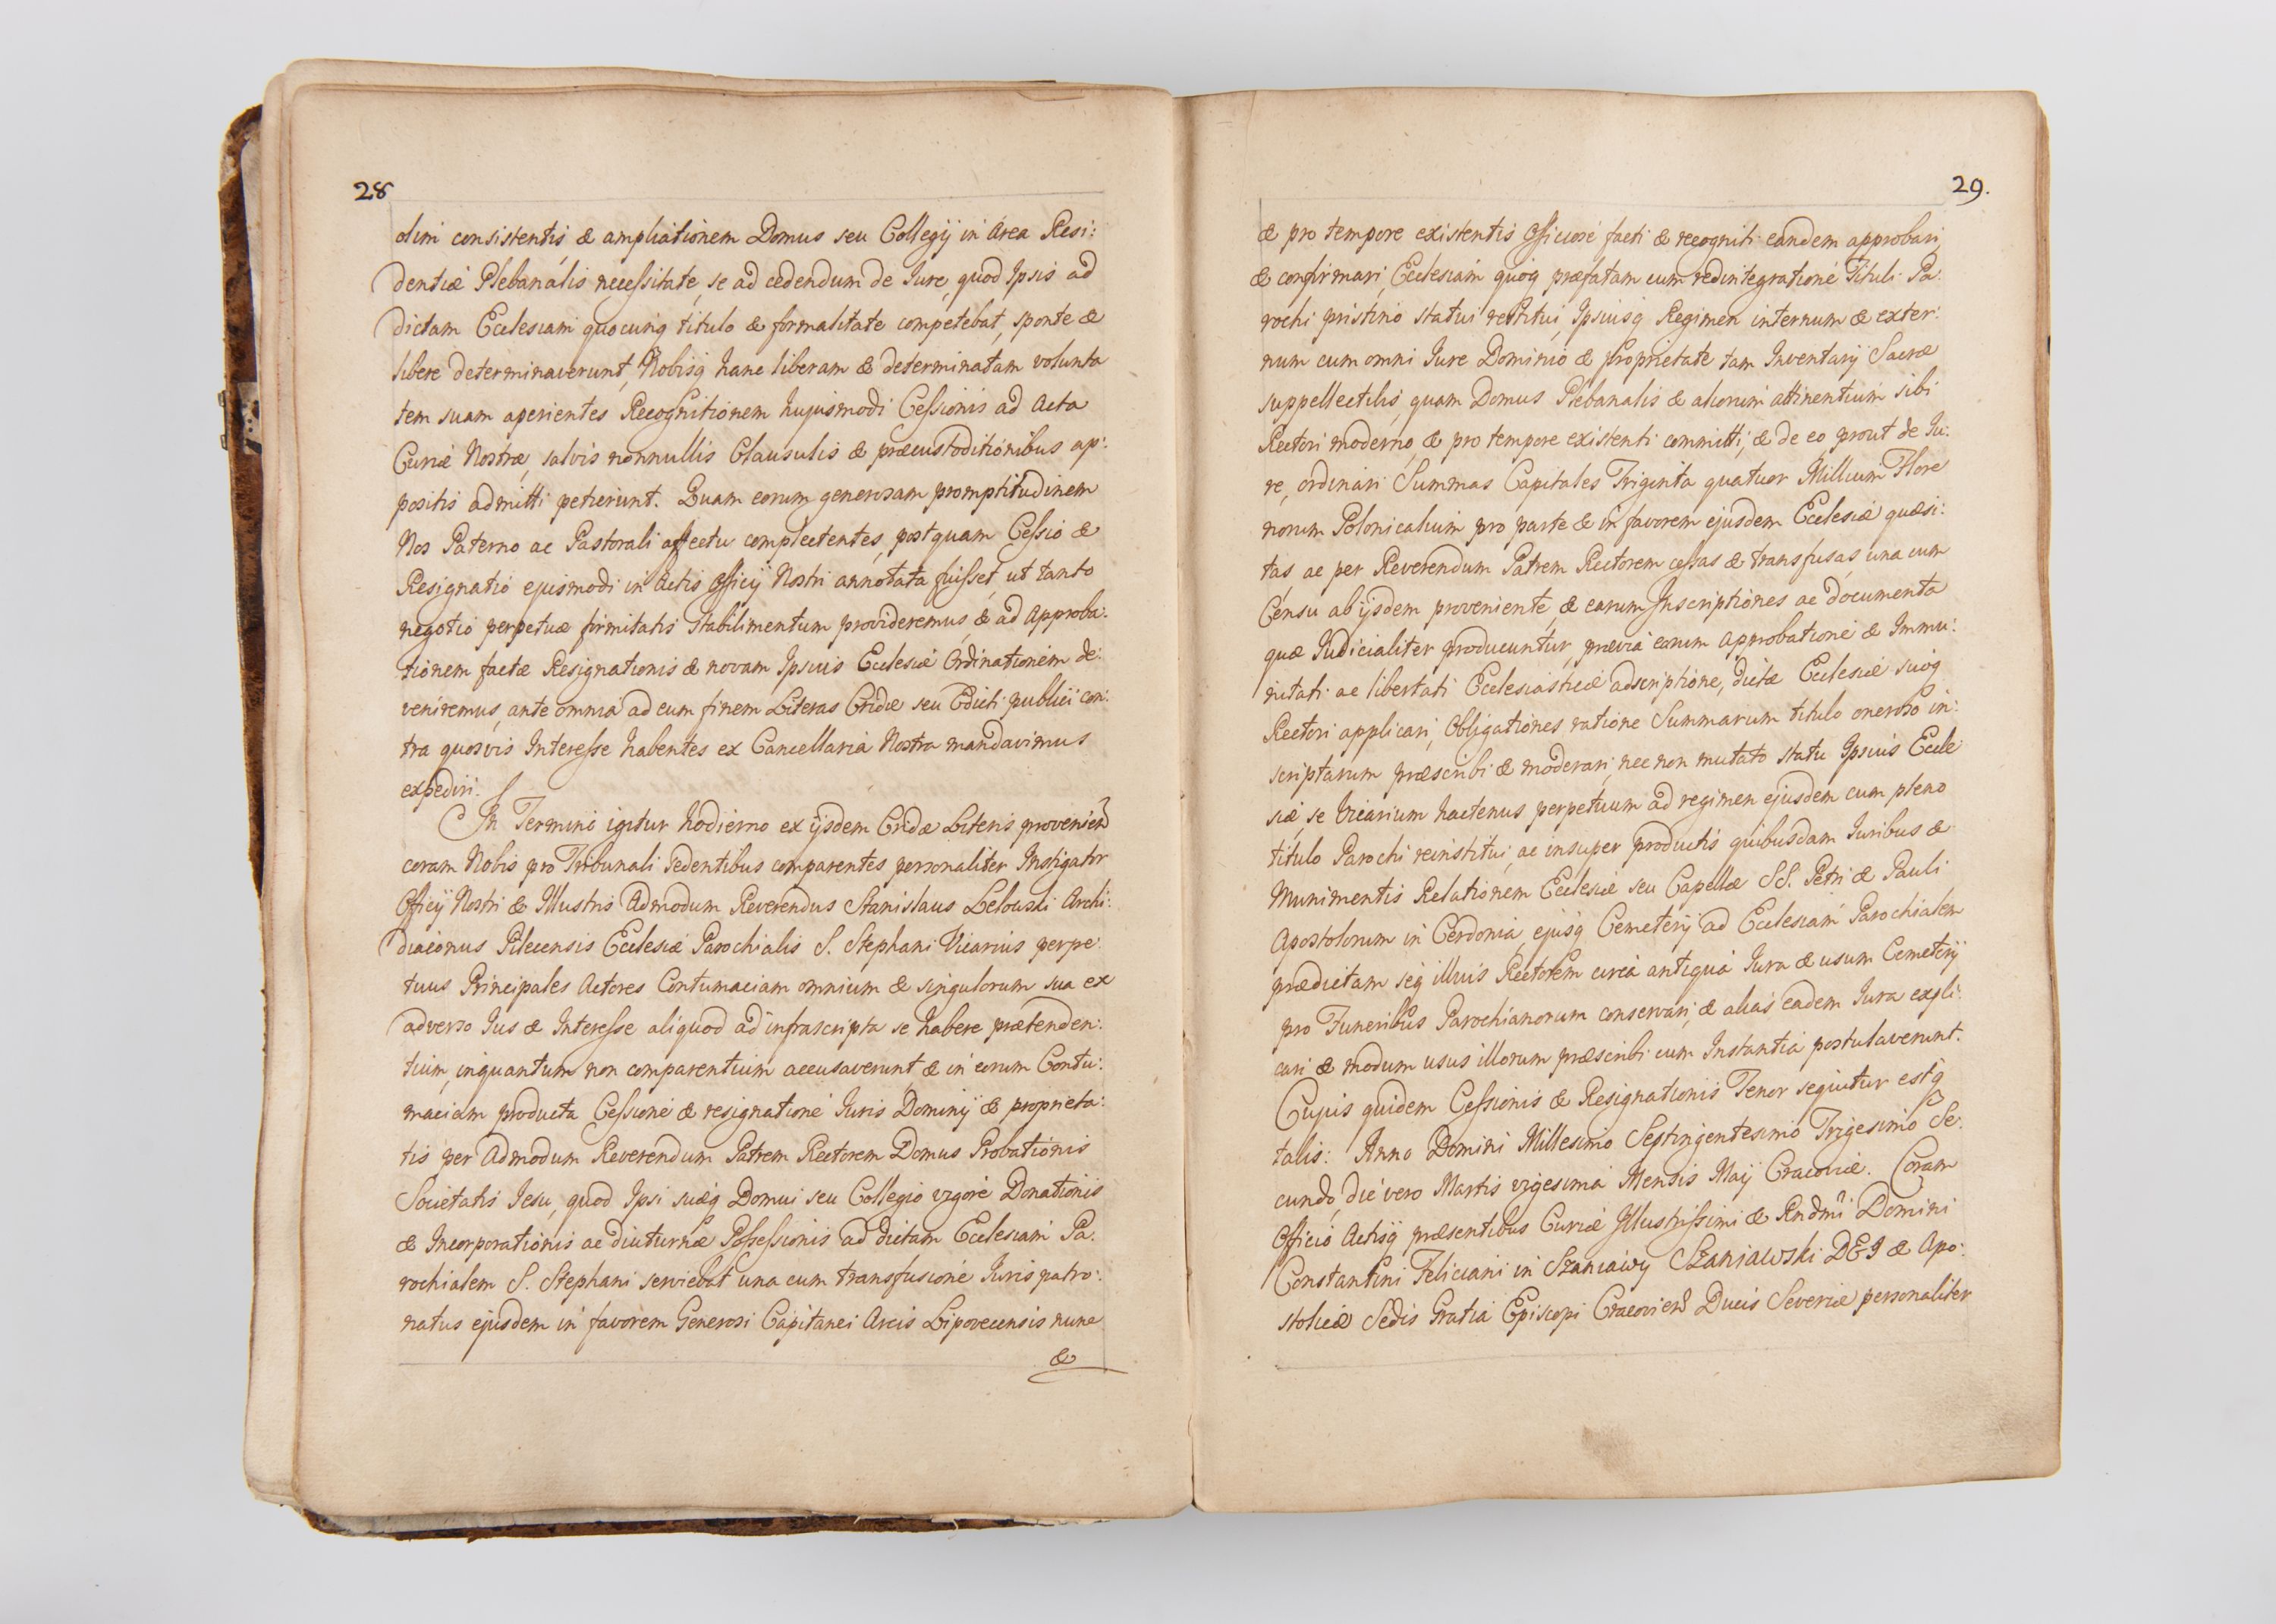 28
olim consistentis & ampliationem Domus seu Collegij in Area Resi:
dentiæ Plebanalis necessitate, se ad cedendum de Iure, quod Ipsis ad
dictam Ecclesiam quocunq titulo & formalitate competebat, sponte &
libere determinaverunt, Nobisq hanc liberam & determinatam volunta
tem suam aperientes Recognitionem hujusmodi Cessionis ad Acta
Curiæ Nostræ, salvis nonnullis Clausulis & præcustoditionibus ap:
positis admitti petierunt. Quam eorum generosam promptitudinem
Nos Paterno ac Pastorali affectu complectentes, postquam Cessio &
Resignatio ejusmodi in Actis Officij Nostri annotata fuisset, ut tanto
negotio perpetuæ firmitatis stabilimentum provideremus, & ad Approba:
tionem factæ Resignationis & novam Ipsius Ecclesiæ Ordinationem de:
veniremus, ante omnia ad eum finem Literas Cridæ seu Edicti publici con:
tra quosvis Interesse habentes ex Cancellaria Nostra mandavimus
expediri.
In Termino igitur hodierno ex ijsdem Cridæ Literis provenien
coram Nobis pro Tribunali Sedentibus comparentes personaliter Instigator
Officij Nostri & Illustris Admodum Reverendus Stanislaus Lelowski Archi:
diaconus Pilecensis Ecclesiæ Parochialis S. Stephani Vicarius perpe:
tuus Principales Actores Contumaciam omnium & singulorum sua ex
adverso Ius & Interesse aliquod ad infrascripta se habere prætenden:
tium, inquantum non comparentium accusaverunt, & in eorum Contu:
maciam producta Cessione & resignatione Iuris Dominij & proprieta:
tis per Admodum Reverendum Patrem Rectorem Domus Probationis
Societatis Iesu, quod Ipsi suæq Domui seu Collegio vigore Donationis
& Incorporationis ac diuturnæ Possessionis ad dictam Ecclesiam Pa:
rochialem S. Stephani serviebat una cum transfusione Iuris patro:
natus ejusdem in favorem Generosi Capitanei Arcis Lipovecensis nunc
&
29.
& pro tempore existentis Officiose facti & recogniti eandem approbari,
& confirmari, Ecclesiam quoq præfatam cum redintegratione Tituli Pa:
rochi pristino statui restitui, Ipsiusq Regimen internum & exter:
num cum omni Iure Dominio & proprietate tam Inventarij Sacræ
suppellectilis quam Domus Plebanalis & aliorum attinentium sibi
Rectori moderno, & pro tempore existenti committi, & de eo prout de Iu:
re, ordinari Summas Capitales Triginta quatuor Millium Flore
norum Polonicalium pro parte & in favorem ejusdem Ecclesiæ quæsi:
tas ac per Reverendum Patrem Rectorem cessas & transfusas, una cum
Censu ab ijsdem proveniente, & earum Inscriptiones ac documenta
quæ Iudicialiter producuntur, prævia eorum approbatione & Immu:
nitati ac libertati Ecclesiasticæ adscriptione, dictæ Ecclesiæ suoq
Rectori applicari, Obligationes ratione Summarum titulo oneroso in:
scriptarum præscribi & moderari, nec non mutato statu Ipsius Eccle
siæ, se Vicarium hactenus perpetuum ad regimen ejusdem cum pleno
titulo Parochi reinstitui, ac insuper productis quibusdam Iuribus &
Munimentis Relationem Ecclesiæ seu Capellæ SS. Petri & Pauli
Apostolorum in Cerdonia, ejusq Cemeterij ad Ecclesiam Parochialem
prædictam seq illius Rectorem circa antiqua Iura & usum Cemeterij
pro Funeribus Parochianorum conservari, & alias eadem Iura expli:
cari & modum usus illorum præscribi cum Instantia postulaverunt.
Cujus quidem Cessionis & Resignationis Tenor sequitur estq
talis: Anno Domini Millesimo Septingentesimo Trigesimo Se:
cundo, die vero Martis vigesima Mensis Maij Cracoviæ. Coram
Officio Actisq præsentibus Curiæ Illustrissimi & Rndmi Domini
Constantini Feliciani in Szaniawy Szaniawski DEI & Apo:
stolicæ Sedis Gratia Episcopi Cracovien Ducis Severiæ personaliter